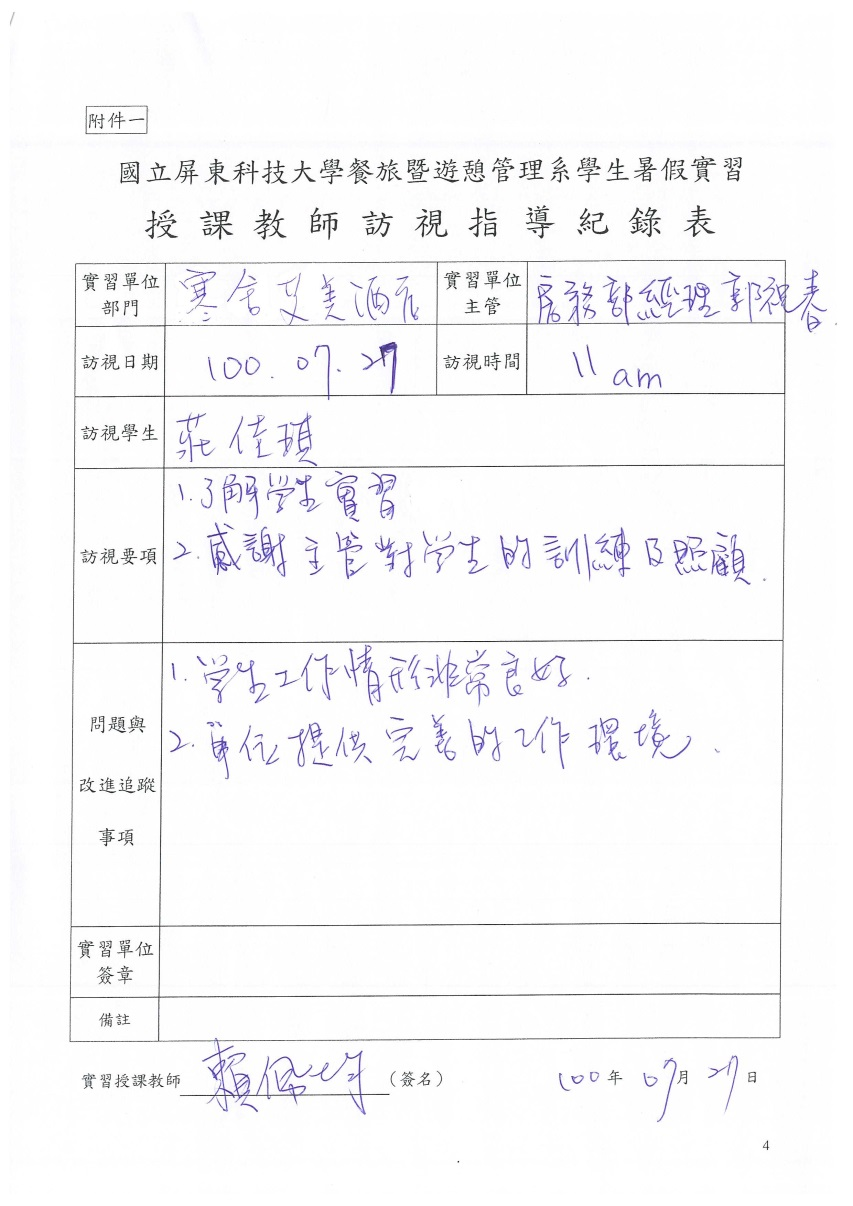 附件一
國立屏東科技大學餐旅暨遊憩管理系學生暑假實習
授課教師訪視指導紀錄表
實習單位部門 寒舍艾美酒店 實習單位主管 房務部經理郭祝春
訪視日期 100.07.27 訪視時間 11 am
訪視學生 莊佳琪
訪視要項
1.了解學生實習
2.感謝主管對學生的訓練及照顧.
問題與改進追蹤事項
1.學生工作情形非常良好.
2.單位提供完善的工作環境.
實習單位簽章
備註
實習授課教師 賴佩均 (簽名) 100年07月27日
4